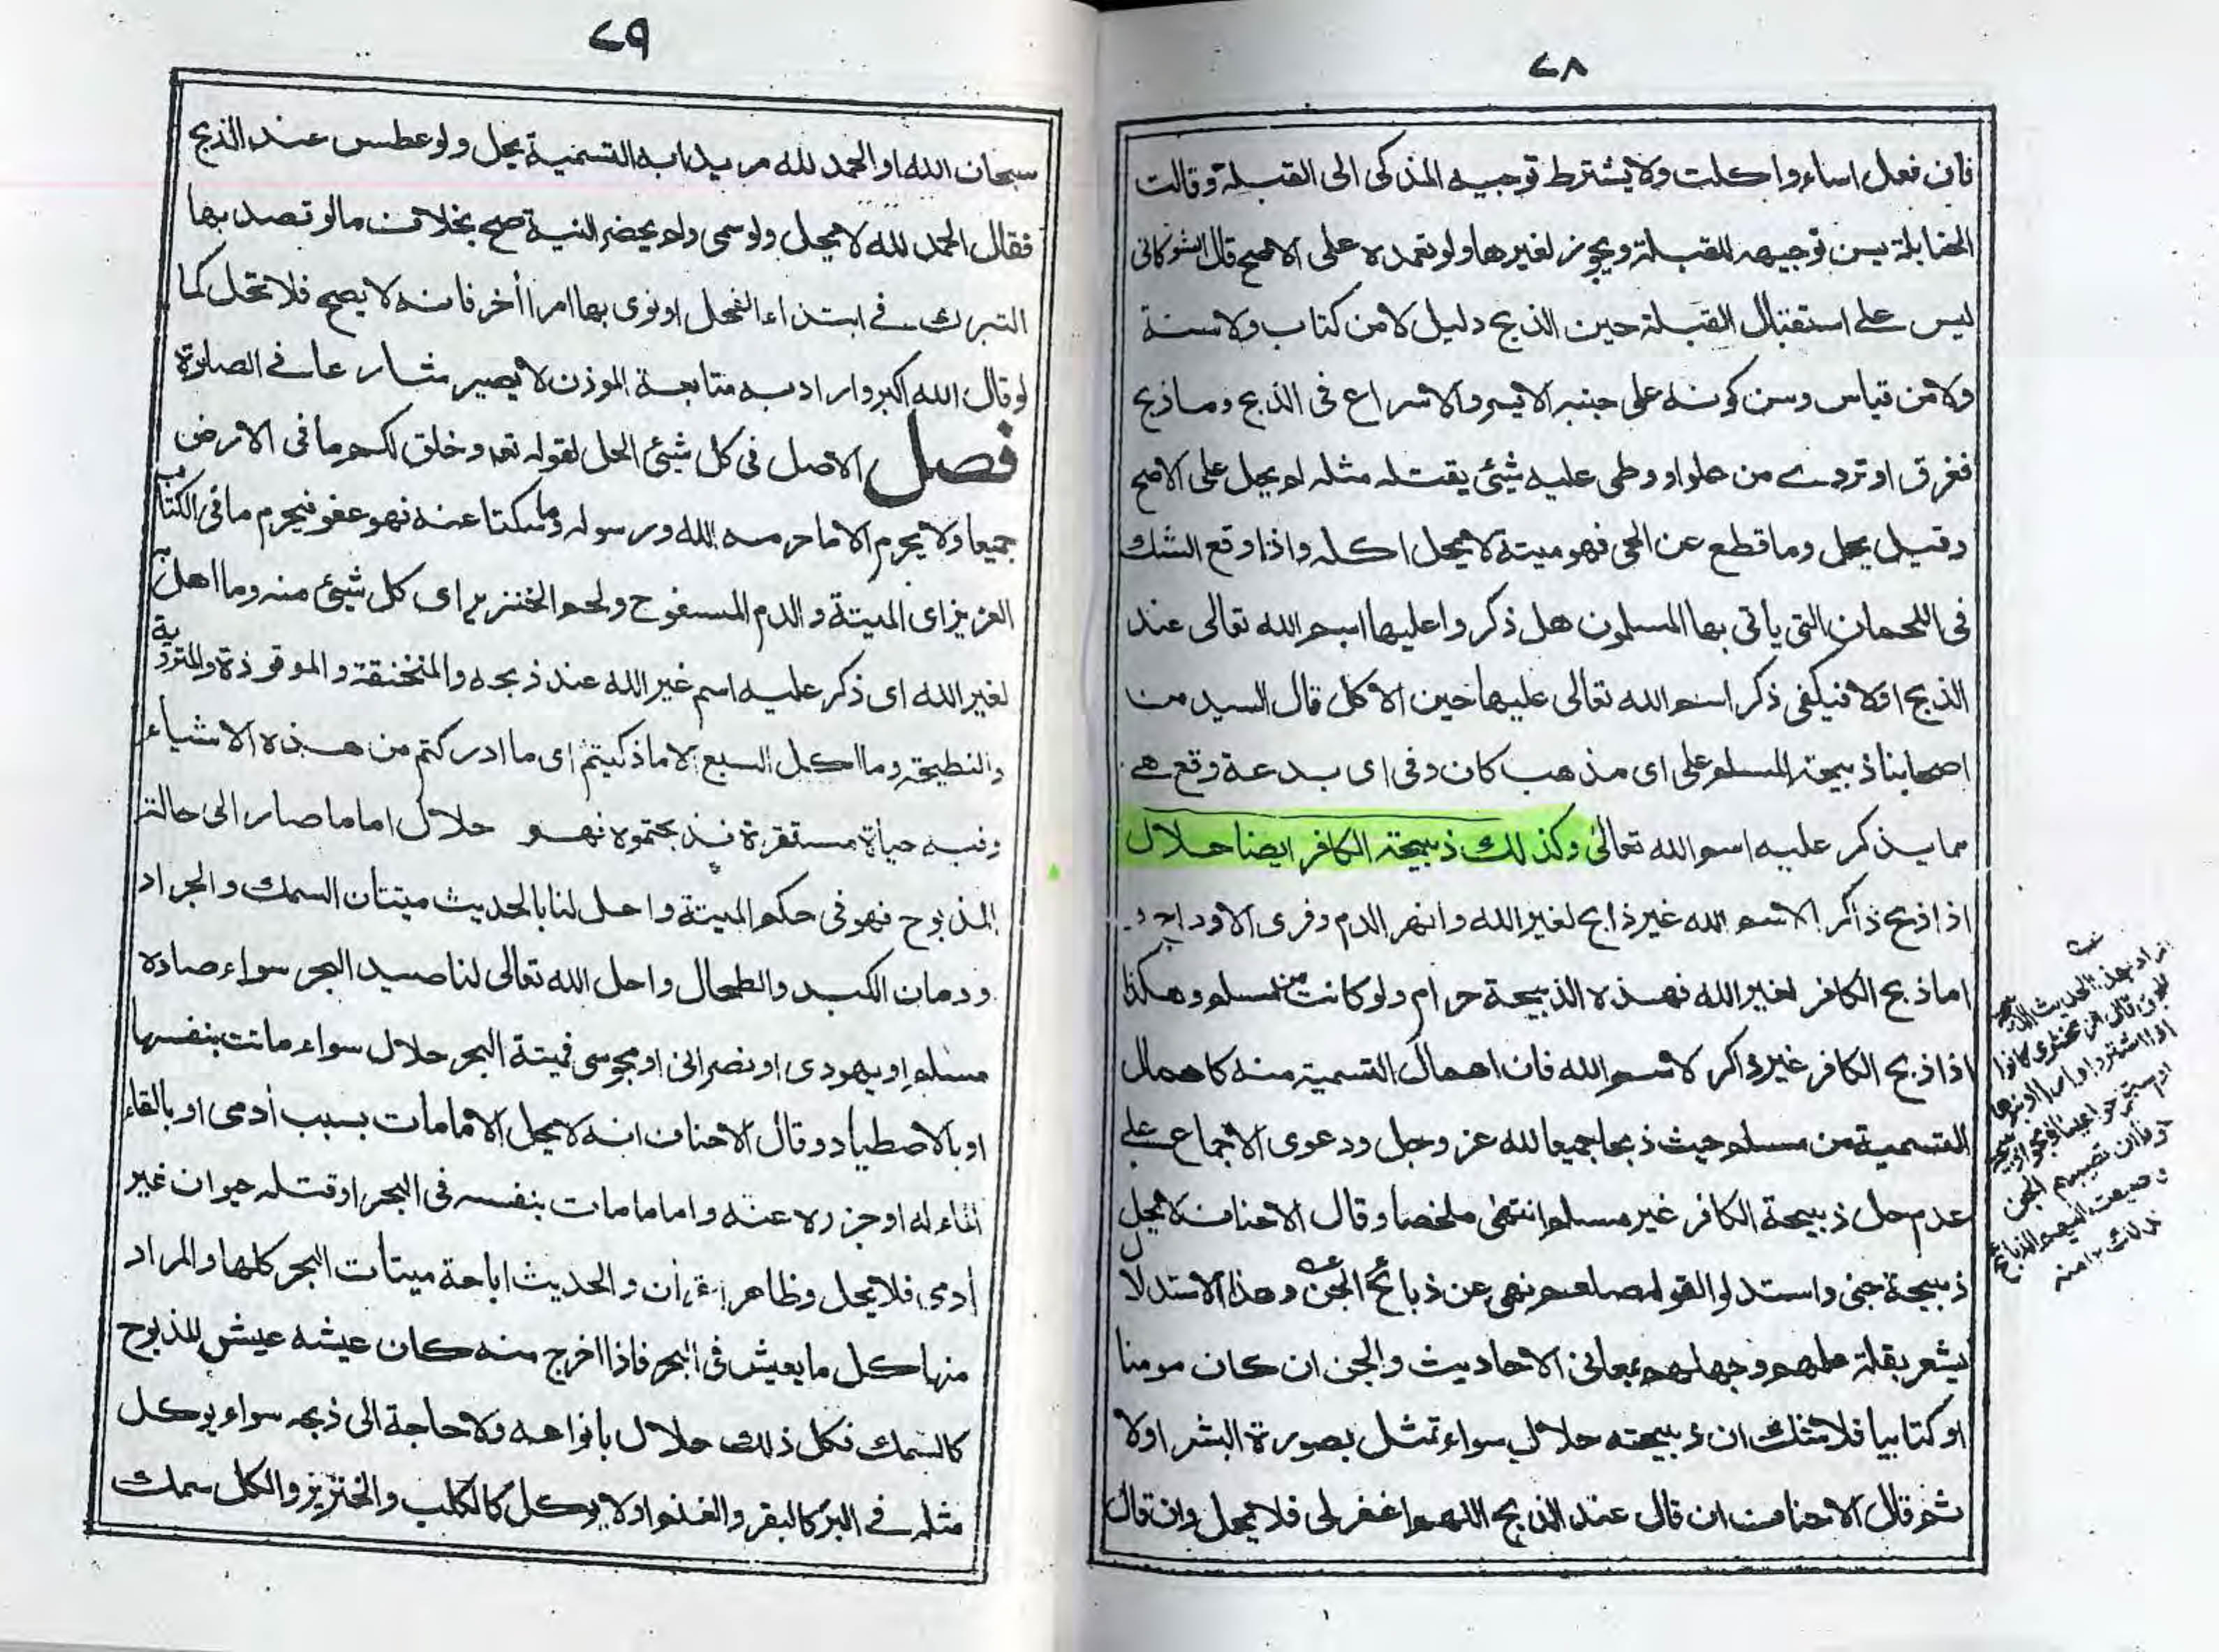 ٧٨
فان فعل اساء و اكلت ولا يشترط توجيه المذكى الى القبلة وقالت
الحنابلة يسن توجيهه للقبلة ويجوز لغيرها ولو تعمده على الاصح قال الشوكانى
ليس على استقبال القبلة حين الذبح دليل لا من كتاب ولا سنة
ولا من قياس وسن كونه على جنبه الايسر والاسراع فى الذبح وما ذبح
فغرق او تردے من علو او وطى عليه شيئ يقتله مثله لم يحل على الاصح
وقيل يحل وما قطع عن الحى فهو ميتة لا يحل اكله واذا وقع الشك
فى اللحمان التى ياتى بها المسلمون هل ذكروا عليها اسم الله تعالى عند
الذبح اولا فيكفى ذكر اسم الله تعالى عليها حين الاكل قال السيد من
اصحابنا ذبيحة المسلم على اى مذهب كان وفى اى بدعة وقع هى
مما يذكر عليه اسم الله تعالى وكذلك ذبيحة الكافر ايضا حلال
اذا ذبح ذاكر الاسم الله غير ذابح لغير الله وانهر الدم وفرى الاوداج و
اما ذبح الكافر لغير الله فهذه الذبيحة حرام ولو كانت من مسلم وهكذا
اذا ذبح الكافر غير ذاكر لاسم الله فان اهمال التسمية منه كاهمال
التسمية من مسلم حيث ذبحا جميعا لله عز وجل ودعوى الاجماع على
عدم حل ذبيحة الكافر غير مسلم انتهى ملخصا وقال الاحناف لا يحل
ذبيحة جنى واستدلوا لقوله صلعم نهى عن ذبائح الجن وهذا الاستدلال
يشعر بقلة علمهم وجهلهم بمعانى الاحاديث والجن ان كان مومنا
او كتابيا فلا شك ان ذبيحته حلال سواء تمثل بصورة البشر اولا
ثم قال الاحناف ان قال عند الذبح اللهم اغفر لى فلا يحل وان قال
اراد بهذا الحديث
قال الزمخشرى كانوا
اذا اشتروا دارا او بنوها
او استخرجوا عينا
خوفا ان تصيبهم الجن
لذلك ١٢ منه
٧٩
سبحان الله او الحمد لله مريدا به التسمية يحل ولو عطس عند الذبح
فقال الحمد لله لا يحل ولو سمى ولم يحضر النية صح بخلاف ما لو قصد بها
التبرك فى ابتداء الفعل او نوى بها امرا أخر فانه لا يصح فلا تحل كما
لو قال الله اكبر واراد به متابعة الموذن لا يصير شارعا فى الصلوة
فصل الاصل فى كل شيئ الحل لقوله تعم وخلق لكم ما فى الارض
جميعا ولا يحرم الا ما حرمه الله ورسوله وما سكتا عنه فهو عفو فيحرم ما فى الكتاب
العزيز اى الميتة والدم المسفوح ولحم الخنزير اى كل شيئ منه وما اهل به
لغير الله اى ذكر عليه اسم غير الله عند ذبحه والمنخنقة والموقوذة والمتردية
والنطيحة وما اكل السبع الا ما ذكيتم اى ما ادركتم من هذه الاشياء
وفيه حياة مستقرة فذبحتموه فهو حلال اما ما صار الى حالة
المذبوح فهو فى حكم الميتة واحل لنا بالحديث ميتتان السمك والجراد
ودمان الكبد والطحال واحل الله تعالى لنا صيد البحر سواء صاده
مسلم او يهودى او نصرانى او مجوسى فميتة البحر حلال سواء ماتت بنفسها
او بالاصطياد وقال الاحناف انه لا يحل الا ما مات بسبب أدمى او بالقاء
الماء له او جزره عنه واما ما مات بنفسه فى البحر او قتله حيوان غير
أدمى فلا يحل وظاهر القرأن والحديث اباحة ميتات البحر كلها والمراد
منها كل ما يعيش فى البحر فاذا اخرج منه كان عيشه عيش المذبوح
كالسمك فكل ذلك حلال بانواعه ولا حاجة الى ذبحه سواء يوكل
مثله فى البر كالبقر والغنم اولا يوكل كالكلب والخنزير والكل سمك